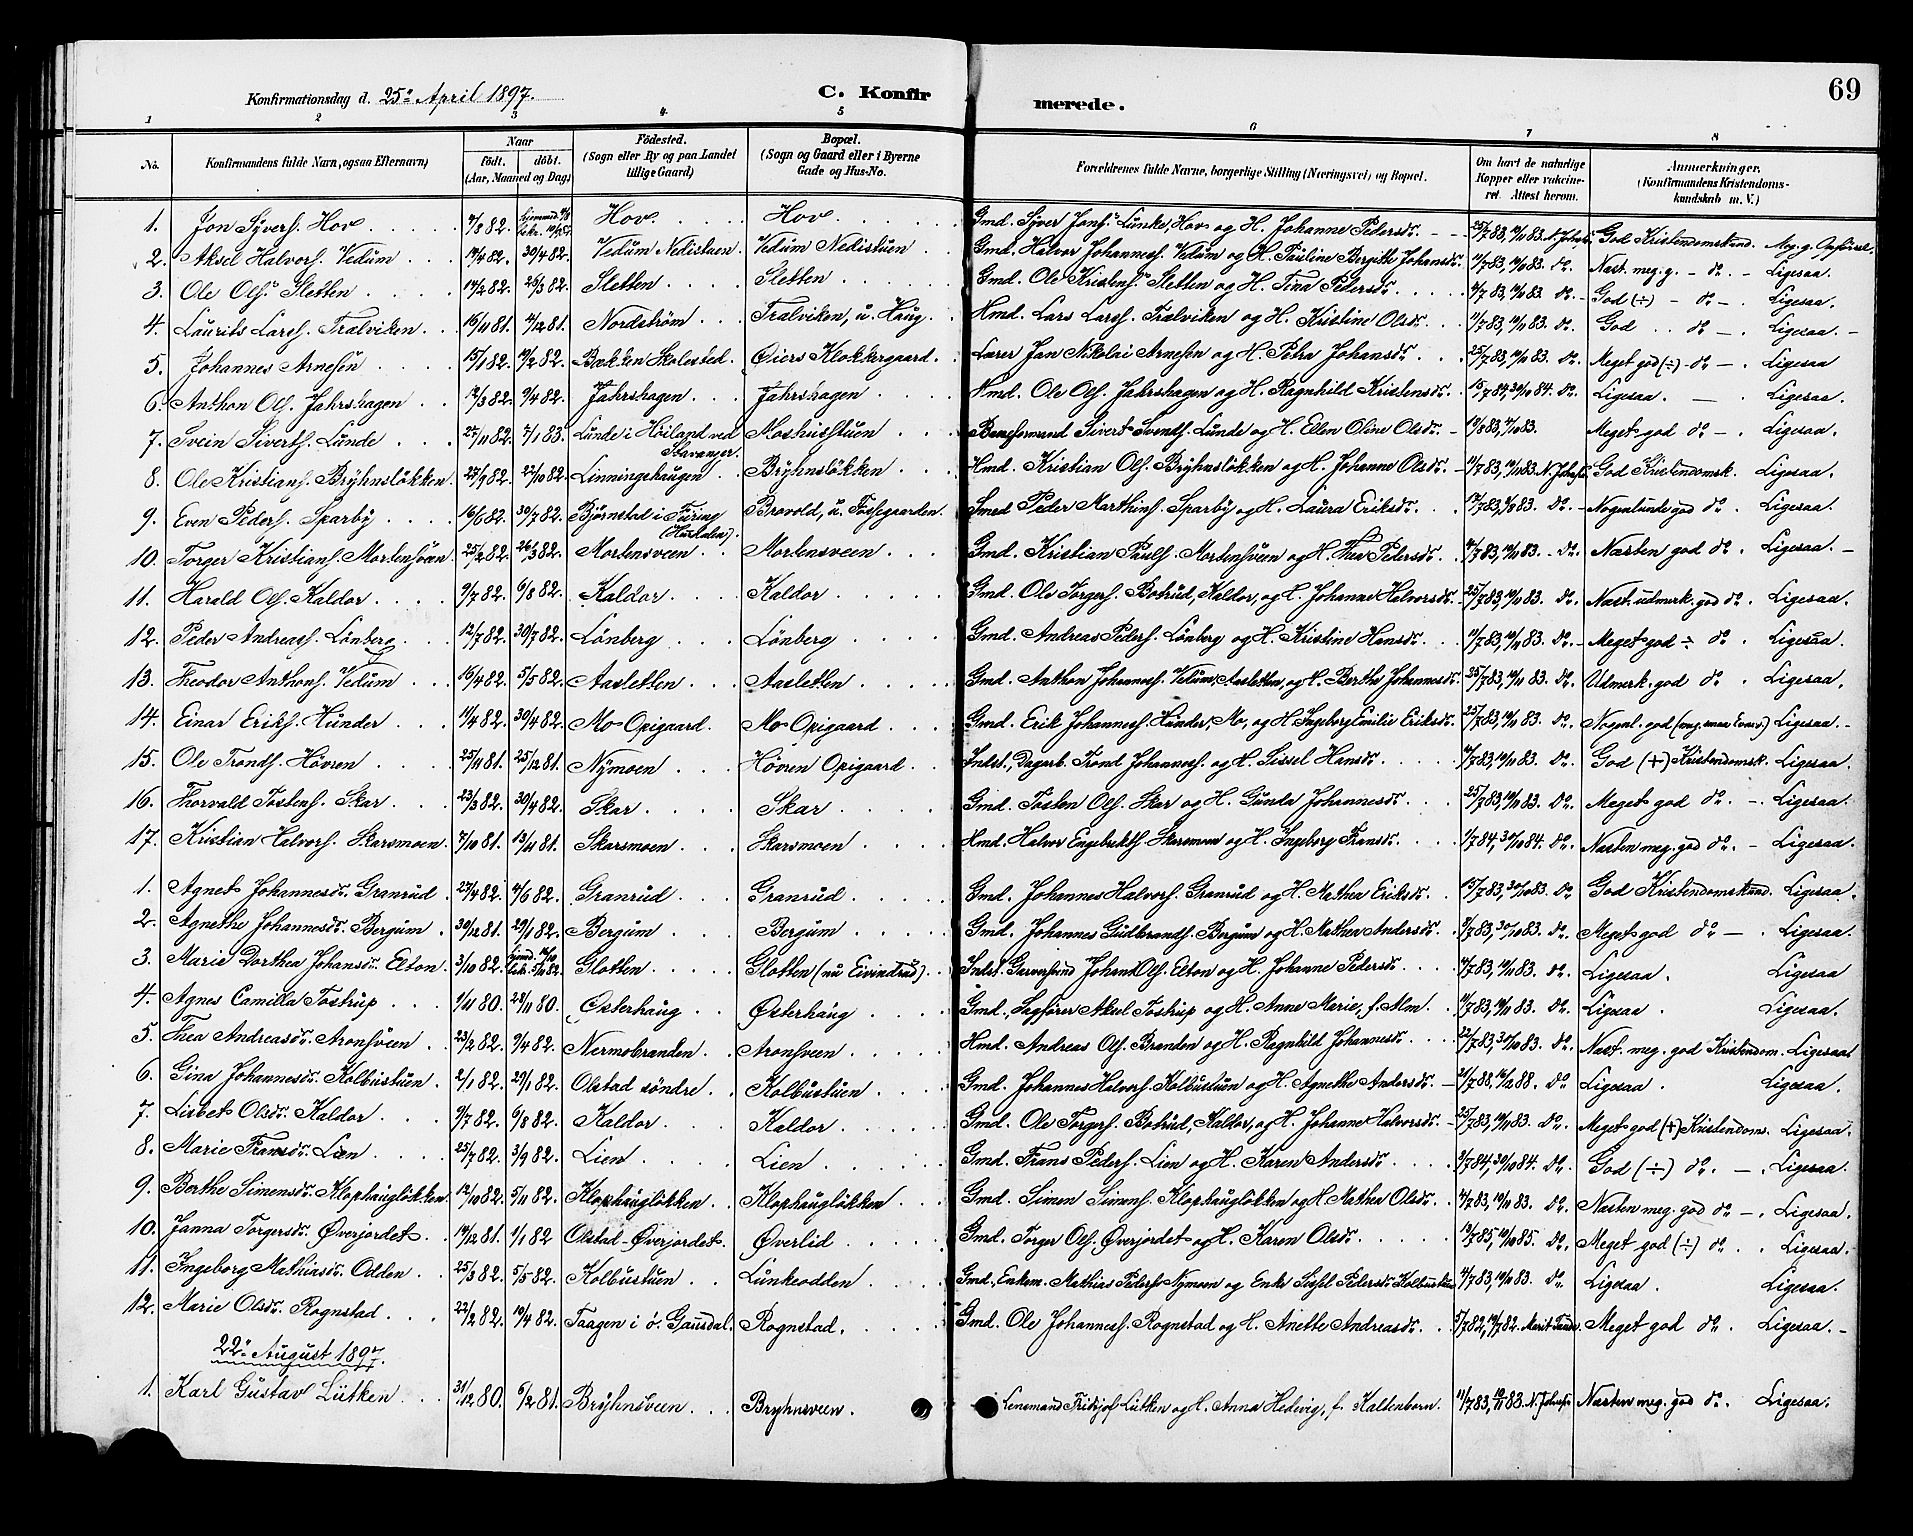 Konfirmationsdag d. 25de April 1897. C. Konfirmerede. 69
1 2 3 4. 5 6 7 8
No. Konfirmandens fulde Navn, ogsaa Efternavn) Naar födt. döbt. (Aar, Maaned og Dag) Födested. (Sogn eller By og paa Landet tillige Gaard) Bopæl. (Sogn og Gaard eller i Byerne Gade og Hus-No. Forældrenes fulde Navne, borgerlige Stilling (Næringsvei) og Bopæl. Om havt de naturlige Kopper eller vakcineret. Attest herom. Anmerkninger. (Konfirmandens Kristendomskundskab m. V.)
1. Jon Syvers. Hov Hov Hov Gmd. Syver Jons. Lunke, Hov og H. Johanne Pedersdr. God Kristendomskund. Meg. g. Opførsel
2. Aksel Halvors. Vedum 30/4 82. Vedum Nedistuen Vedum Nedistuen Gmd. Halvor Johanness. Vedum og H. Pauline Birgitte Johansdr. 19/11 83. do. Næst. meg. g. - do - Ligesaa
3. Ole Ols. Sletten 17/2 82. 26/3 82. Sletten Sletten Gmd. Ole Kristens. Sletten og H. Tina Pedersdr. do God (÷) - do - Ligesaa.
4. Laurits Larss. Trælviken 16/11 81. 4/12 81. Nordstrøm Trælviken, u. Haug. Hmd. Lars Larss. Trælviken og H. Kristine Olsdr. do. God do - Ligesaa
5. Johannes Arnesen 15/1 82. 19/2 82. Bækken Skolested. Øiers Klokkergaard. Lærer Jan Nikolai Arnesen og H. Petra Johansdr. do Meget god (÷) do - Ligesaa
6. Anthon Ols. Jahrshagen 12/3 82. 9/4 82. Jahrshagen Jahrshagen Hmd. Ole Ols. Jahrshagen og H. Ragnhild Kristensdr. do. Ligesaa. - Ligesaa.
7. Svein Siverts. Lunde 27/11 82. 7/1 83. Lunde i Höiland ved Stavanger. Moshusstuen Sivert Svends. Lunde og H. Ellen Oline Olsdr. Meget god do - Ligesaa.
8. Ole Kristians. Bryhnsløkken 27/9 82. 22/10 82. Linningshaugen Bryhnsløkken Hmd. Kristian Ols. Bryhnsløkken og H. Johanne Olsdr. God Kristendomsk. Ligesaa.
9. Even Peders. Sparby 16/6 82. 30/7 82. Bjørnstad i Furing (Hurdalen). Brovold, u. Fossegaarden. Smed Peder Marthins. Sparby og H. Laura Eriksdr. do Nogenlunde god do Ligesaa.
10. Torger Kristians. Mortensveen 25/2 82. 26/3 82. Mortensveen Mortensveen Gmd. Kristian Pauls. Mortensveen og H. Thea Pedersdr. do. Næsten god do. Ligesaa.
11. Harald Ols. Kaldor 9/7 82. 6/8 82. Kaldor Kaldor Gmd. Ole Torgers. Botrud, Kaldor, og H. Johanne Halvorsdr. do. Næst. udmerk. god do. Ligesaa.
12. Peder Andreass. Lönberg 12/7 82. 30/7 82. Lönberg Lönberg Gmd. Andreas Peders. Lönberg og H. Kristine Hansdr. do. Meget god ÷ do. Ligesaa.
13. Theodor Anthons. Vedum 16/4 82. 5/5 82. Aasletten Aasletten Gmd. Anthon Johanness. Vedum, Aasletten, og H. Berthe Johannesdr. do. Udmerk. god do. Ligesaa.
14. Einar Eriks. Hunder 11/4 82. 30/4 82. Mo Opigaard. Mo Opigaard Gmd. Erik Johanness. Hunder, Mo, og H. Ingeborg Emilie Eriksdr. do. Nogenl. god Ligesaa.
15. Ole Tronds. Hövren 25/11 81. 25/12 81. Nymoen Hövren Opigaard Indst., Dagarb. Trond Johanness. og H. Sissel Hansdr. do. God (+) Kristendomsk. Ligesaa.
16. Thorvald Tostens. Skar 23/3 82. 30/4 82. Skar Skar Gmd. Tosten Ols. Skar og H. Gunda Johannesdr. do. Meget god do. Ligesaa.
17. Kristian Halvors. Skarsmoen 7/10 81. 13/11 81. Skarsmoen Skarsmoen Hmd. Halvor Engebrekts. Skarsmoen og H. Ingeborg Fransdr. do. Næsten meg. god do. Ligesaa.
1. Agnet Johannesdr. Granrud 27/4 82. 4/6 82. Granrud Granrud Gmd. Johannes Halvors. Granrud og H. Mathea Eriksdr. do God Kristendomskund. Ligesaa.
2. Agnethe Johannesdr. Bergum 30/12 81. 29/1 82. Bergum Bergum Gmd. Johannes Gudbrands. Bergum og H. Mathea Andersdr. do. Meget god do - Ligesaa.
3. Marie Dorthea Johansdr. Elton 3/10 82. Glotten Glotten (nu Eivindrud) Indst. Garversvend Johan Ols. Elton og H. Johanne Pedersdr. do. Ligesaa. Ligesaa
4. Agnes Camilla Tostrup 1/11 80. 28/11 80. Østerhaug Østerhaug Gmd., Sagfører Aksel Tostrup og H. Anne Marie, f. Alm. do. Ligesaa Ligesaa.
5. Thea Andreasdr. Aronsveen 23/2 82. 9/4 82. Nermobranden Aronsveen Hmd. Andreas Ols. Branden og H. Ragnhild Johannesdr. do. Næst. meg. god Kristendom. Ligesaa
6. Gina Johannesdr. Kolbustuen 2/1 82. 29/1 82. Olstad söndre Kolbustuen Gmd. Johannes Halvors. Kolbustuen og H. Agnethe Andersdr. do. Ligesaa. Ligesaa.
7. Lisbet Olsdr. Kaldor 9/7 82. 6/8 82. Kaldor Kaldor Gmd. Ole Torgers. Botrud, Kaldor, og H. Johanne Halvorsdr. do. Meget god (+) Kristendoms. Ligesaa.
8. Marie Fransdr. Lien 25/7 82. 3/9 82. Lien Lien Gmd. Frans Peders. Lien og H. Karen Andersdr. do. God (÷) do. - Ligesaa.
9. Berthe Simensdr. Klophaugløkken 12/10 82. 5/11 82. Klophaugløkken Klophaugløkken Gmd. Simen Simens. Klophaugløkken og H. Mathea Olsdr. do. Næsten meg. god do - Ligesaa.
10. Janna Torgersdr. Øverjordet 14/12 81. 1/1 82 Olstad-Øverjordet. Øverlid Gmd. Torger Ols. Øverjordet og H. Karen Olsdr. do. Meget god (÷) do. Ligesaa.
11. Ingeborg Mathiasdr. Odden 25/3 82. 5/5 82. Kolbustuen Lunkeodden Gmd. Enkem. Mathias Peders. Nymoen og Enke Sissel Pedersdr. Kolbustuen do. Ligesaa. Ligesaa.
12. Marie Olsdr. Rognstad 22/2 82. 10/4 82. Taagen i ö. Gausdal. Rognstad. Gmd. Ole Johanness. Rognstad og H. Anette Andreasdr. Meget god do. Ligesaa.
22de August 1897.
1. Karl Gustav Lütken 31/12 80. 6/2 81. Bryhnsveen Bryhnsveen. Lensmand Fritjof Lütken og H. Anna Hedevig, f. Kaldenborn. Næsten meg. god do. Ligesaa.